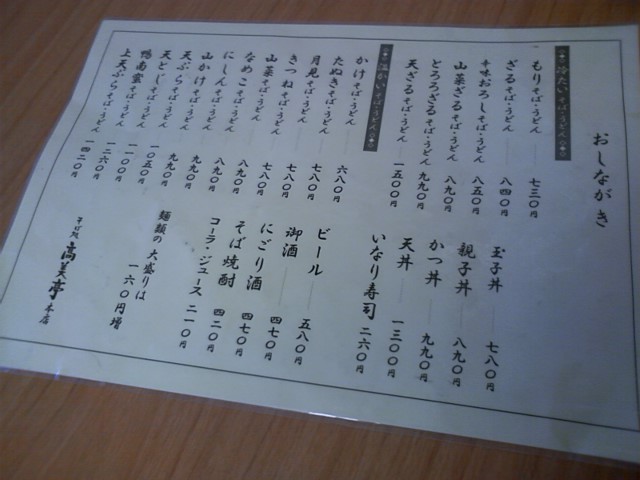 おしながき
冷たいそば・うどん
もりそば・うどん 七三〇円
ざるそば・うどん 八四〇円
辛味おろしそば・うどん 八五〇円
山菜ざるそば・うどん 八九〇円
とろろざるそば・うどん 九九〇円
天ざるそば・うどん 一五〇〇円
温かいそば・うどん
かけそば・うどん 六八〇円
たぬきそば・うどん 七八〇円
月見そば・うどん 七八〇円
きつねそば・うどん 七八〇円
山菜そば・うどん 八九〇円
なめこそば・うどん 八九〇円
にしんそば・うどん 九九〇円
山かけそば・うどん 九九〇円
天ぷらそば・うどん 一〇五〇円
天とじそば・うどん 一一〇〇円
鴨南蛮そば・うどん 一二六〇円
上天ぷらそば・うどん 一四二〇円
玉子丼 七八〇円
親子丼 八九〇円
かつ丼 九九〇円
天丼 一三〇〇円
いなり寿司 二六〇円
ビール 五八〇円
御酒 四七〇円
にごり酒 四七〇円
そば焼酎 四二〇円
コーラ・ジュース 二一〇円
麺類の大盛りは 一六〇円増
そば処 高美亭 本店